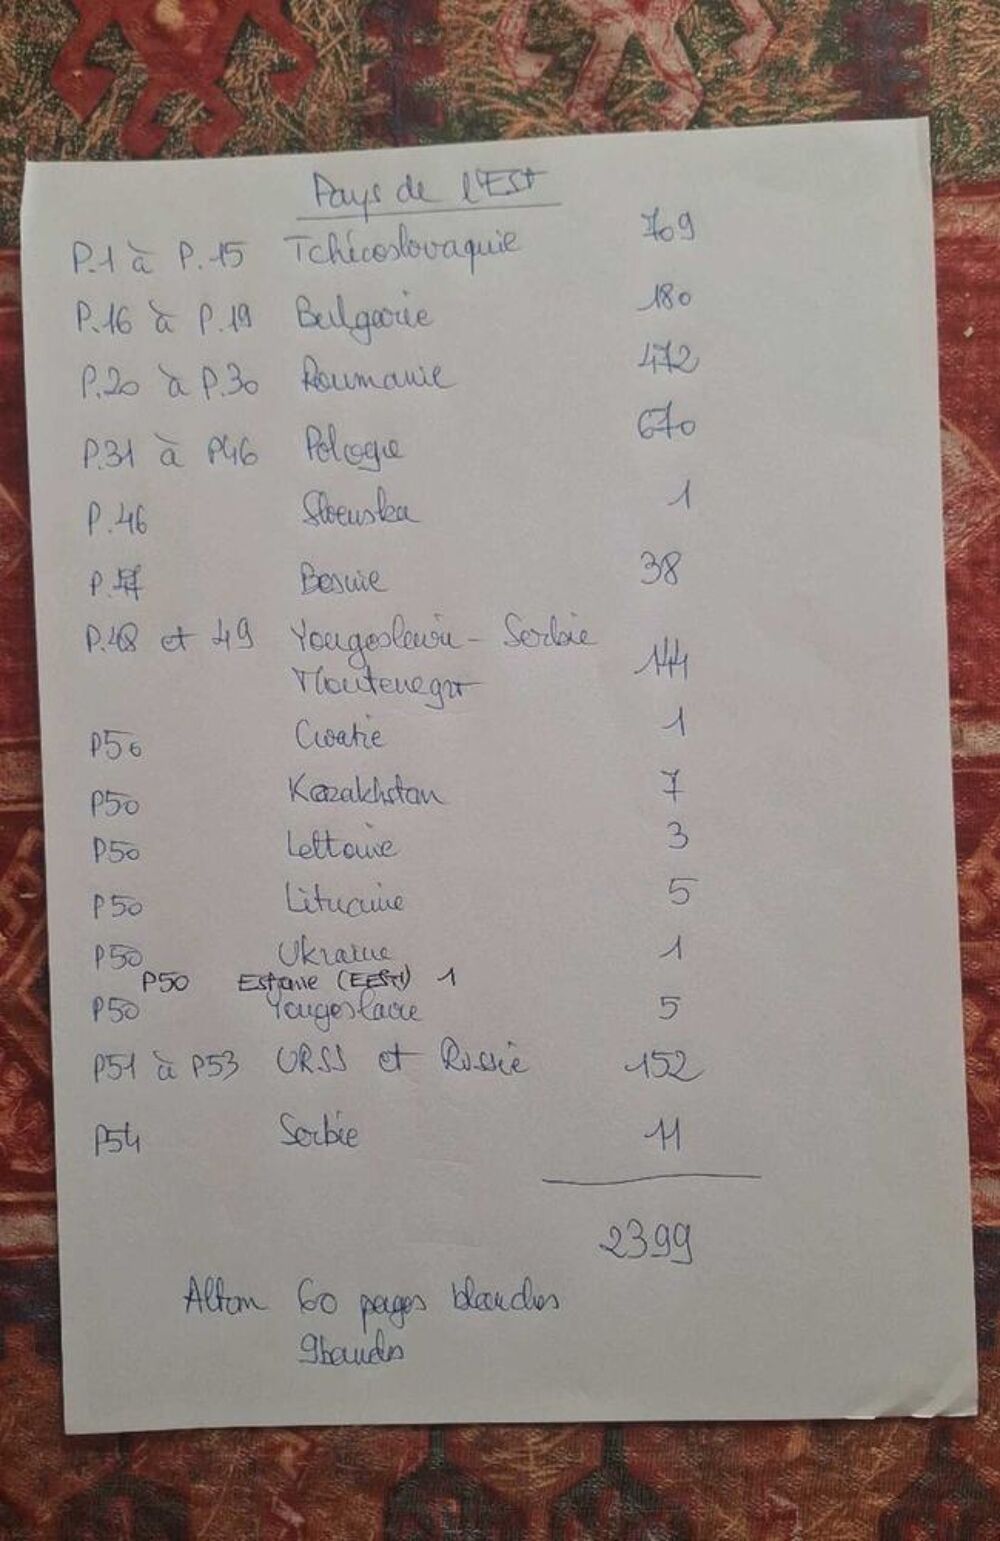 Pays de l'Est
P.1 à P.15 Tchécoslovaquie 769
P.16 à P.19 Bulgarie 180
P.20 à P.30 Roumanie 472
P.31 à P46 Pologne 670
P.46 Slovenska 1
P.47 Bosnie 38
P.48 et 49 Yougoslavie - Serbie
Montenegro 144
P50 Croatie 1
P50 Kazakhstan 7
P50 Lettonie 3
P50 Lituanie 5
P50 Ukraine 1
P50 Estonie (EESTI) 1
P50 Yougoslavie 5
P51 à P53 URSS et Russie 152
P54 Serbie 11
2399
Album 60 pages blanches
9bandes